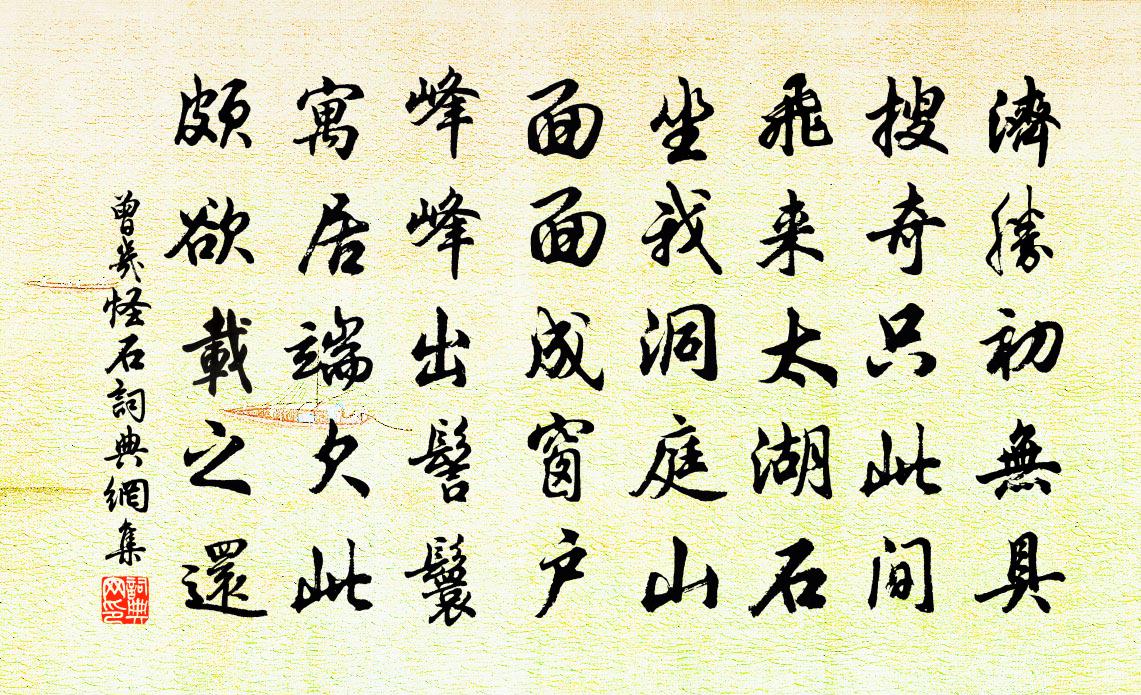 濟勝初無具
搜奇只此間
飛来太湖石
坐我洞庭山
面面成窗户
峰峰出髻鬟
寓居端欠此
頗欲載之還
曾幾怪石詞典網集
詞典网印